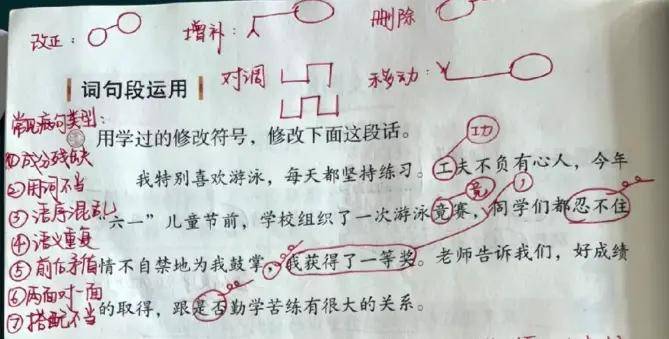 改正：
增补：
删除
词句段运用
对调
移动：
常见病句类型：
用学过的修改符号，修改下面这段话。
①成分残缺
我特别喜欢游泳，每天都坚持练习。工夫不负有心人，今年
功
②用词不当
③语序混乱
“六一”儿童节前，学校组织了一次游泳竟赛，同学们都忍不住
竞
，
④语义重复
⑤前后矛盾
情不自禁地为我鼓掌，我获得了一等奖。老师告诉我们，好成绩
⑥两面对一面
的取得，跟是否勤学苦练有很大的关系。
⑦搭配不当